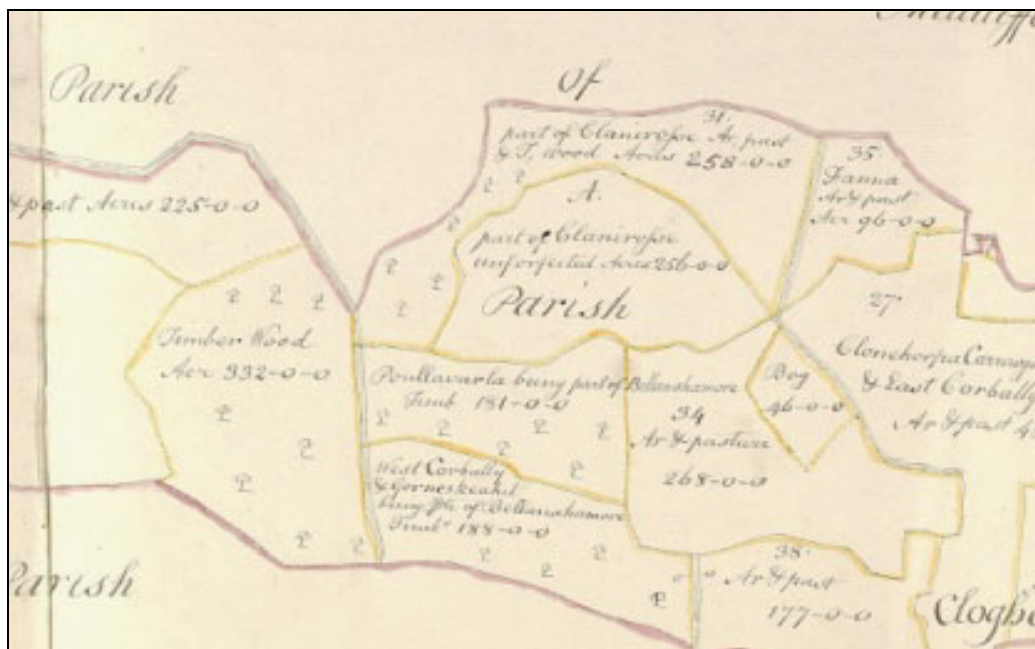 Parish
Of
31.
part of Clanirosse Ar. past
& T. wood Acres 258-0-0
35.
Fanna
Ar & past
Acr 96-0-0
& past Acres 225-0-0
A.
part of Clanirosse
unforfeited Acres 256-0-0
Parish
27.
Clonehorpa
& East Corbally
Ar & past
Timber Wood
Acr 332-0-0
Poullavarla being part of Bellanahamore
Timb 181-0-0
Bog
46-0-0
34
Ar & pasture
268-0-0
West Corbally
& Gorneskeahil
being pte of Bellanahamore
Timbr 188-0-0
38.
Ar & past
177-0-0
Parish